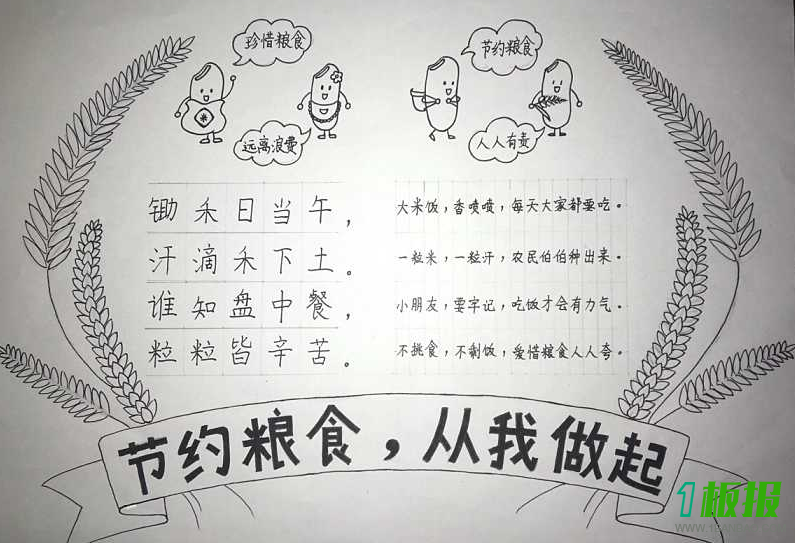 珍惜粮食
节约粮食
远离浪费
人人有责
锄禾日当午，
汗滴禾下土。
谁知盘中餐，
粒粒皆辛苦。
大米饭，香喷喷，每天大家都要吃。
一粒米，一粒汗，农民伯伯种出来。
小朋友，要牢记，吃饭才会有力气。
不挑食，不剩饭，爱惜粮食人人夸。
节约粮食，从我做起
1板报